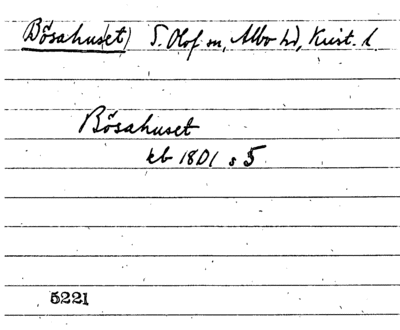 Bösahuset) S. Olof sn, Albo hd, Krist. l.
Bösahuset
kb 1801 s 5
5221